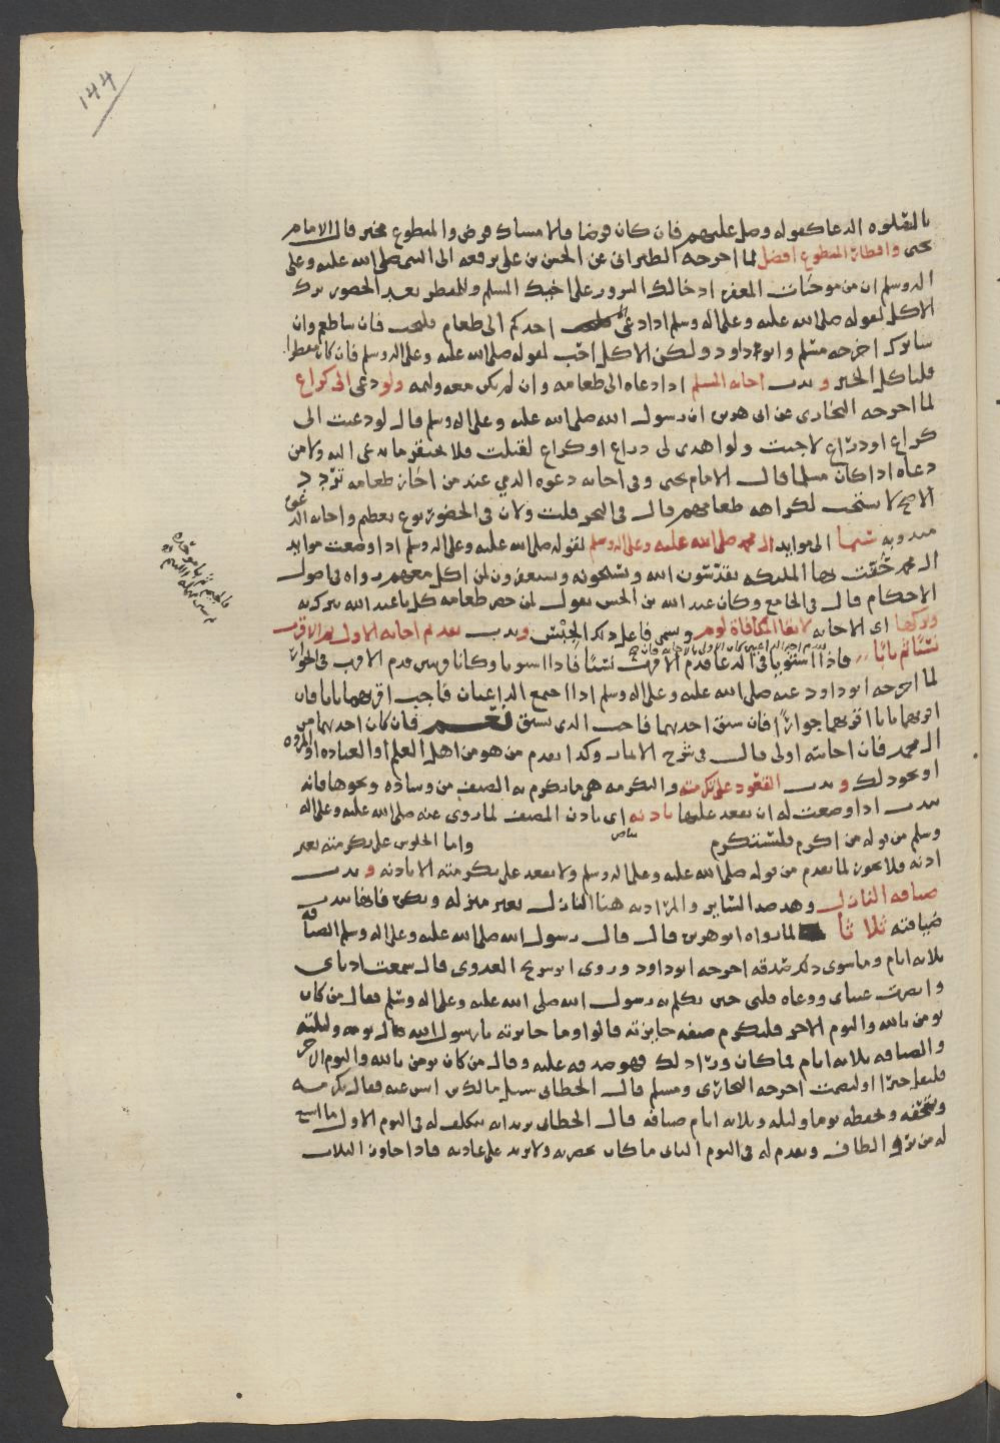 ١٤٤
بالصلوه الدعا كقوله وصل عليهم فان كان فرضا فالامساك فرض والمتطوع مخير قال الامام
يحى وافطار المتطوع افضل لما اخرجه الطبراني عن الحسن بن علي يرفعه الى النبي صلى الله عليه وعلى
اله وسلم ان من موجبات المغفره ادخالك السرور على اخيك المسلم وللمفطر بعد الحضور ترك
الاكل لقوله صلى الله عليه وعلى اله وسلم اذا دعي احدكم الى طعام فليجب فان شا طعم وان
شا ترك اخرجه مسلم وابو داود ولكن الاكل احب لقوله صلى الله عليه وعلى اله وسلم فان كان مفطرا
فلياكل الخبر و ندب اجابه المسلم اذا دعاه الى طعامه وان لم يكن معه وليمه ولو دعي الى كراع
لما اخرجه البخاري عن ابي هريره ان رسول الله صلى الله عليه وعلى اله وسلم قال لو دعيت الى
كراع او ذراع لاجبت ولو اهدي لي ذراع او كراع لقبلت فلا يحتقر ما يدعى اليه ولا من
دعاه اذا كان مسلما قال الامام يحى وفي اجابه دعوه الذمي عند من اجاز طعامه تردد
الاصح لا يستحب لكراهه طعامهم قال في البحر قلت ولان في الحضور نوع تعظيم واجابه الدعوى
مندوبه سيما الى موايد ال محمد صلى الله عليه وعلى اله وسلم لقوله صلى الله عليه وعلى اله وسلم اذا وضعت موايد
ال محمد حفت بها المليكه يقدسون الله ويسبحونه ويستغفرون لمن اكل معهم رواه في اصول
الاحكام قال في الجامع وكان عبد الله بن الحسن يقول لمن حضر طعامه كل يا عبد الله تبركه
وتركها اي الاجابه لاتقا المكافاة لوم ويسمى فاعل ذلك الجبس وندب تقديم اجابه الاول ثم الاقرب
نسبا ثم بابا فاذا استويا في الدعا قدم الاقرب نسبا فاذا استويا وكانا قدم الاقرب في الجوار
لما اخرجه ابو داود عنه صلى الله عليه وعلى اله وسلم اذا اجتمع الداعيان فاجب اقربهما بابا فان
اقربهما بابا اقربهما جوارا فان سبق احدهما فاجب الذي سبق نعم فان كان احدهما من
ال محمد فان اجابته اولى قال في شرح الاثمار وكذا يقدم من هو من اهل العلم او العباده او المروه
او نحو ذلك و ندب القعود على تكرمته والتكرمه هي ما يكرم به الضيف من وساده ونحوها فانه
يندب اذا وضعت له ان يقعد عليها باذنه اي باذن المضيف لما روي عنه صلى الله عليه وعلى اله
وسلم من قوله من اكرم فليستكرم بياض واما الجلوس على تكرمته بغير
اذنه فلا يجوز لما تقدم من قوله صلى الله عليه وعلى اله وسلم ولا يقعد على تكرمته الا باذنه و ندب
ضيافه النازل وهو ضد الساير والمراد به هنا النازل بغير منزله ويكن فانها تندب
ضيافته ثلاثا لما رواه ابو هريره قال قال رسول الله صلى الله عليه وعلى اله وسلم الضيافه
ثلاثه ايام وما سوى ذلك صدقه اخرجه ابو داود وروى ابو شريح العدوي قال سمعت اذناي
وابصرت عيناي ووعاه قلبي حين تكلم به رسول الله صلى الله عليه وعلى اله وسلم فقال من كان
يومن بالله واليوم الاخر فليكرم ضيفه جايزته قالوا وما جايزته يا رسول الله قال يومه وليلته
والضيافه ثلاثه ايام فما كان ورا ذلك فهو صدقه عليه وقال من كان يومن بالله واليوم الاخر
فليقل خيرا او ليصمت اخرجه البخاري ومسلم قال الخطابي سيل مالك بن انس عنه فقال يكرمه
ويتحفه ويحفظه يوما وليله وثلاثه ايام ضيافه قال الخطابي يريد انه يتكلف له في اليوم الاول ما اتسع
له من بر والطاف ويقدم له في اليوم الثاني ما كان بحضرته ولا يزيد على عادته فاذا جاوز الثلاث